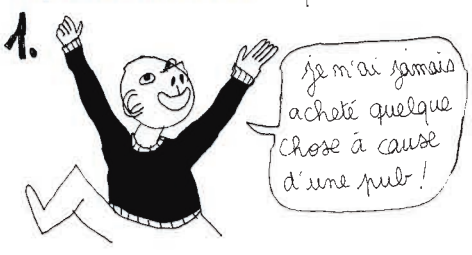 1.
Je n'ai jamais
acheté quelque
chose à cause
d'une pub !